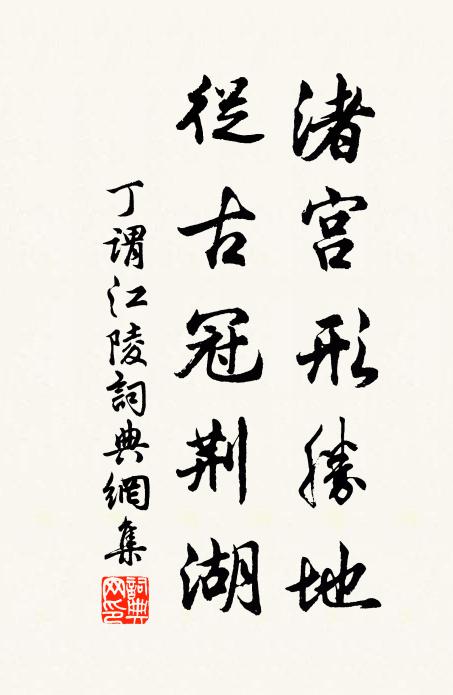 渚宫形勝地
從古冠荆湖
丁謂江陵詞典網集
詞典網印